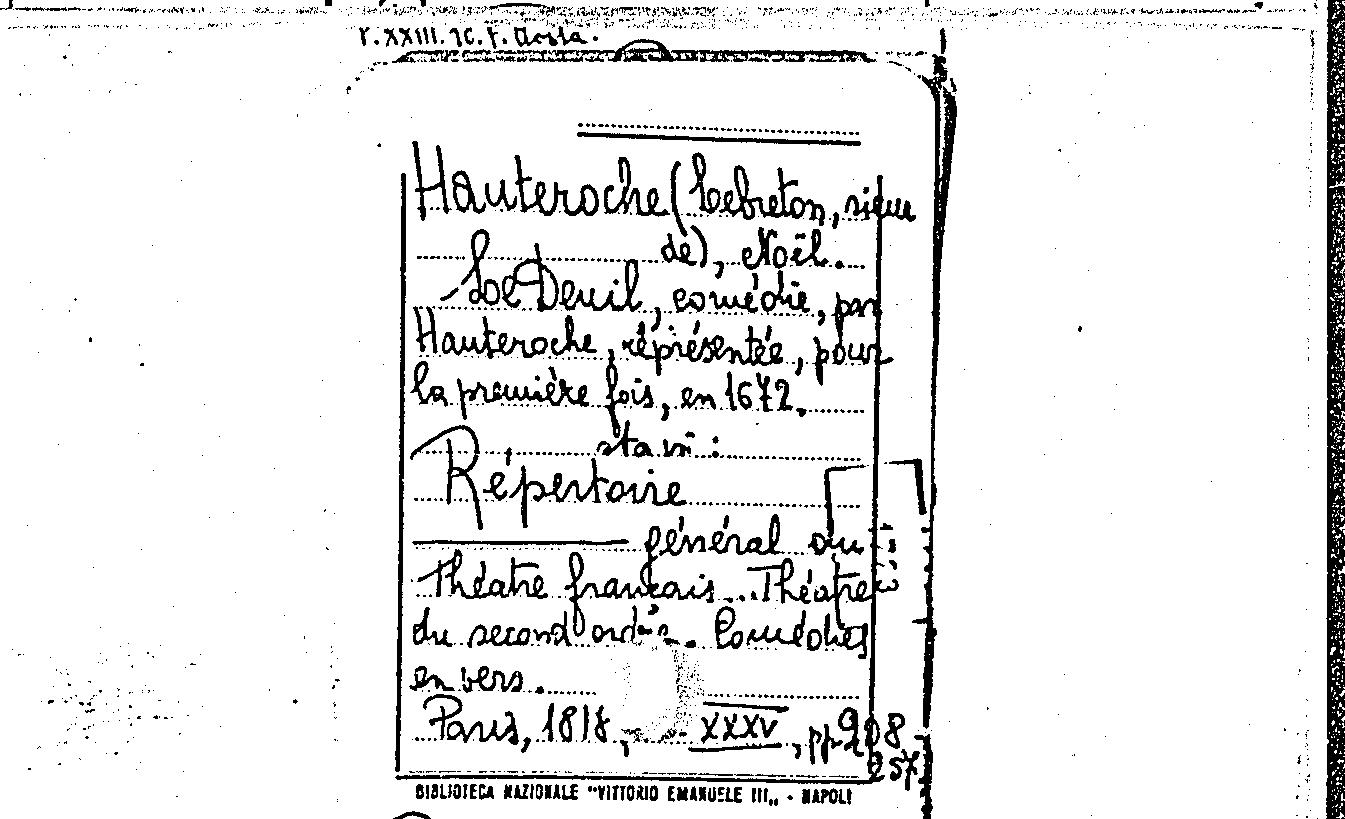 Hauteroche (Lebreton, sieur
de), Noël.
- Le Deuil, comédie, par
Hauteroche, réprésentée, pour
la première fois, en 1672.
sta in:
Répertoire
général du
Théatre français... Théatre
du second ordre. Comédies
en vers.
Paris, 1818, XXXV, pp. 208
257
BIBLIOTECA NAZIONALE "VITTORIO EMANUELE III„ - NAPOLI